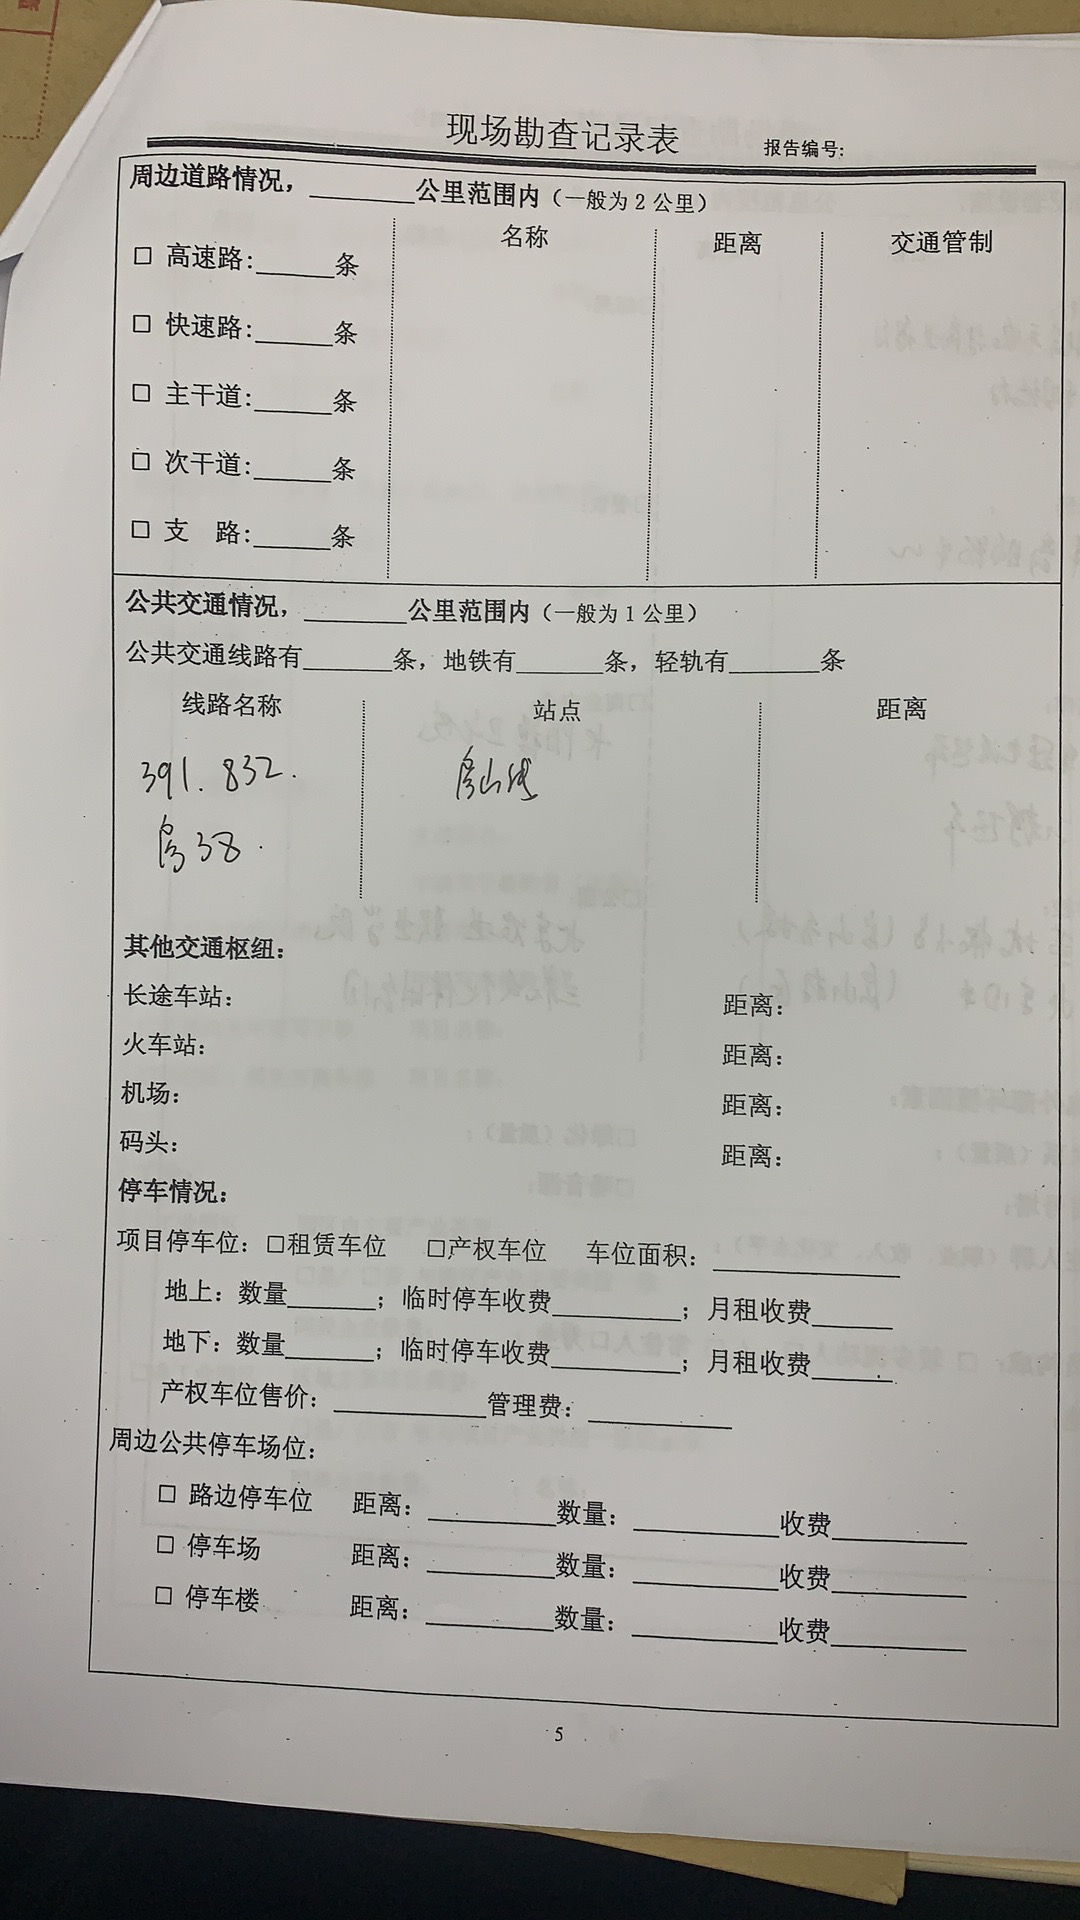 现场勘查记录表 报告编号:
周边道路情况，________公里范围内（一般为2公里）
名称 距离 交通管制
□ 高速路:______条
□ 快速路:______条
□ 主干道:______条
□ 次干道:______条
□ 支 路:______条
公共交通情况，________公里范围内（一般为1公里）
公共交通线路有_______条，地铁有_______条，轻轨有_______条
线路名称 站点 距离
391.832. 房山线
房38.
其他交通枢纽：
长途车站： 距离：
火车站： 距离：
机场： 距离：
码头： 距离：
停车情况：
项目停车位：□租赁车位 □产权车位 车位面积：______________
地上：数量_______；临时停车收费__________；月租收费______
地下：数量_______；临时停车收费__________；月租收费______
产权车位售价：____________管理费：___________
周边公共停车场位：
□ 路边停车位 距离：__________数量：___________收费__________
□ 停车场 距离：__________数量：___________收费__________
□ 停车楼 距离：__________数量：___________收费__________
5